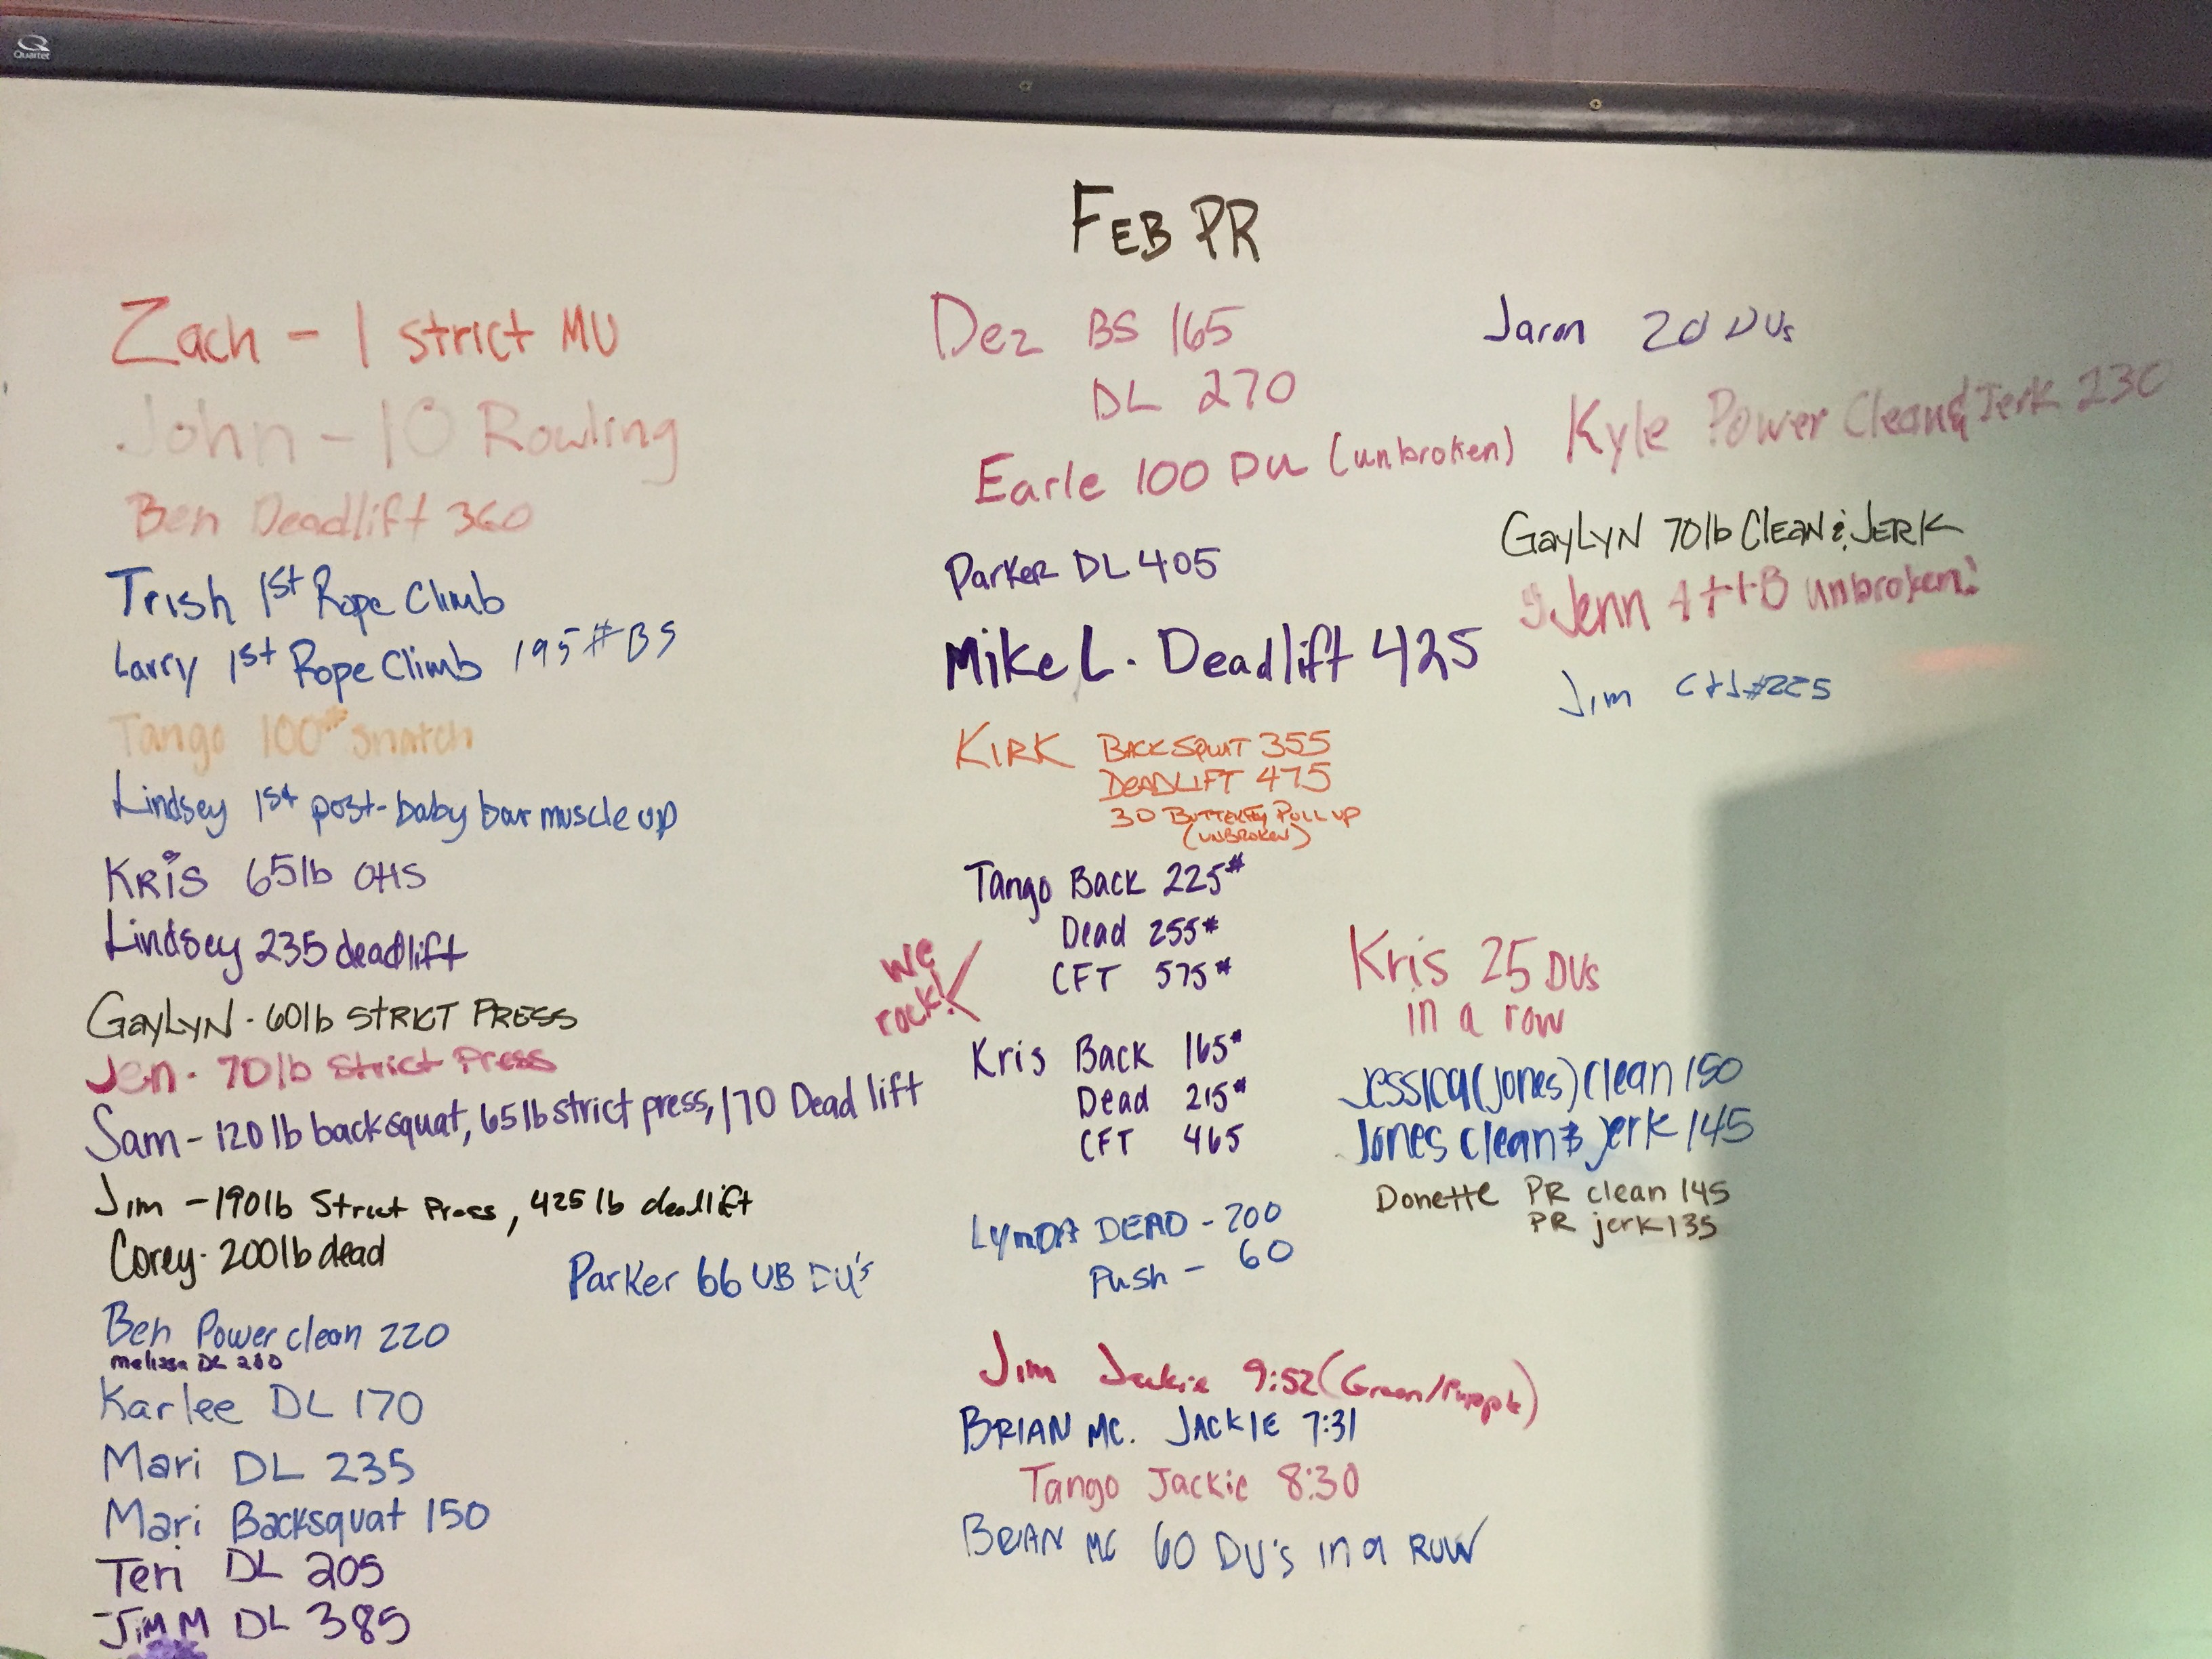 Quartet
FEB PR
Zach - 1 strict MU
John - 10 Rowling
Ben Deadlift 360
Trish 1st Rope Climb
Larry 1st Rope Climb 195# BS
Tango 100# snatch
Lindsey 1st post-baby bar muscle up
KRiS 65lb OHS
Lindsey 235 deadlift
GayLYN - 60lb STRICT PRESS
Jen - 70lb Strict Press
Sam - 120 lb backsquat, 65 lb strict press, 170 Deadlift
Jim - 190lb Strict Press, 425 lb deadlift
Corey - 200lb dead
Parker 66 UB DU's
Ben Power clean 220
melissa DL 200
Karlee DL 170
Mari DL 235
Mari Backsquat 150
Teri DL 205
JIM M DL 385
Dez BS 165
DL 270
Earle 100 DU (unbroken)
Parker DL 405
Mike L. Deadlift 425
KIRK BACK SQUAT 355
DEADLIFT 475
30 BUTTERFLY PULL UP
(UNBROKEN)
Tango Back 225#
Dead 255#
CFT 575#
we
rock!
Kris Back 165#
Dead 215#
CFT 465
LYNDA DEAD - 200
Push - 60
Jim Jackie 9:52 (Green/Purple)
BRIAN MC. JACKIE 7:31
Tango Jackie 8:30
BRIAN MC 60 DU's in a ROW
Jaron 20 DUs
Kyle Power Clean & Jerk 230
GayLYN 70lb CLEAN & JERK
Jenn 4 TTB unbroken!
Jim C+J #225
Kris 25 DUs
in a row
Jessica (Jones) Clean 150
Jones clean & jerk 145
Donette PR clean 145
PR jerk 135